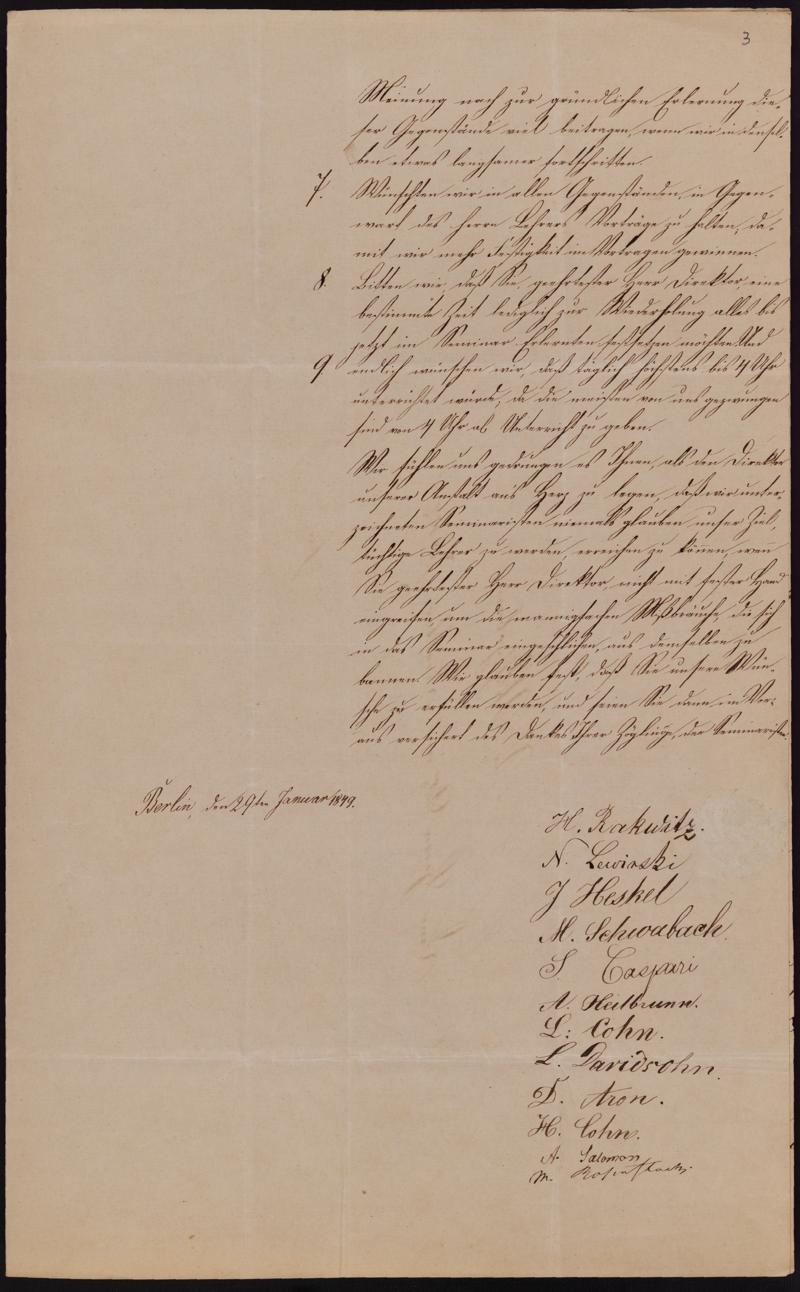 3
Meinung nach zur gründlichen Erlernung die-
ser Gegenstände viel beitragen, wenn wir in densel-
ben etwas langsamer fortschritten.
7. Wünschten wir in allen Gegenständen, in Gegen-
wart des Herrn Lehrers Vorträge zu halten, da-
mit wir mehr Festigkeit im Vortragen gewinnen.
8. Bitten wir, daß Sie, geehrtester Herr Direktor, eine
bestimmte Zeit lediglich zur Wiederholung alles bis
jetzt im Seminar Erlernten festsetzen möchten. Und
9 endlich wünschen wir, daß täglich höchstens bis 4 Uhr
unterrichtet würde, da die meisten von uns gezwungen
sind von 4 Uhr ab Unterricht zu geben.
Wir fühlen uns gedrungen es Ihnen, als den Direktor
unserer Anstalt an's Herz zu legen, daß wir unter-
zeichneten Seminaristen niemals glauben unser Ziel,
tüchtige Lehrer zu werden, erreichen zu können, wenn
Sie geehrtester Herr Direktor, nicht mit fester Hand
eingreifen um die mannigfachen Mißbräuche, die sich
in das Seminar eingeschlichen, aus demselben zu
bannen. Wir glauben fest, daß Sie unsere Wün-
sche zu erfüllen werden, und seien Sie dann im Vor-
aus versichert des Dankes Ihrer Zöglinge, der Seminaristen.
Berlin, den 29ten Januar 1849.
H. Rakwitz.
N. Lewinski
J Heskel
M. Schwabach.
S. Caspari
A. Heilbrunn.
L: Cohn.
L. Davidsohn.
D. Aron.
H. Cohn.
A. Salomon
M. Rosenstock.